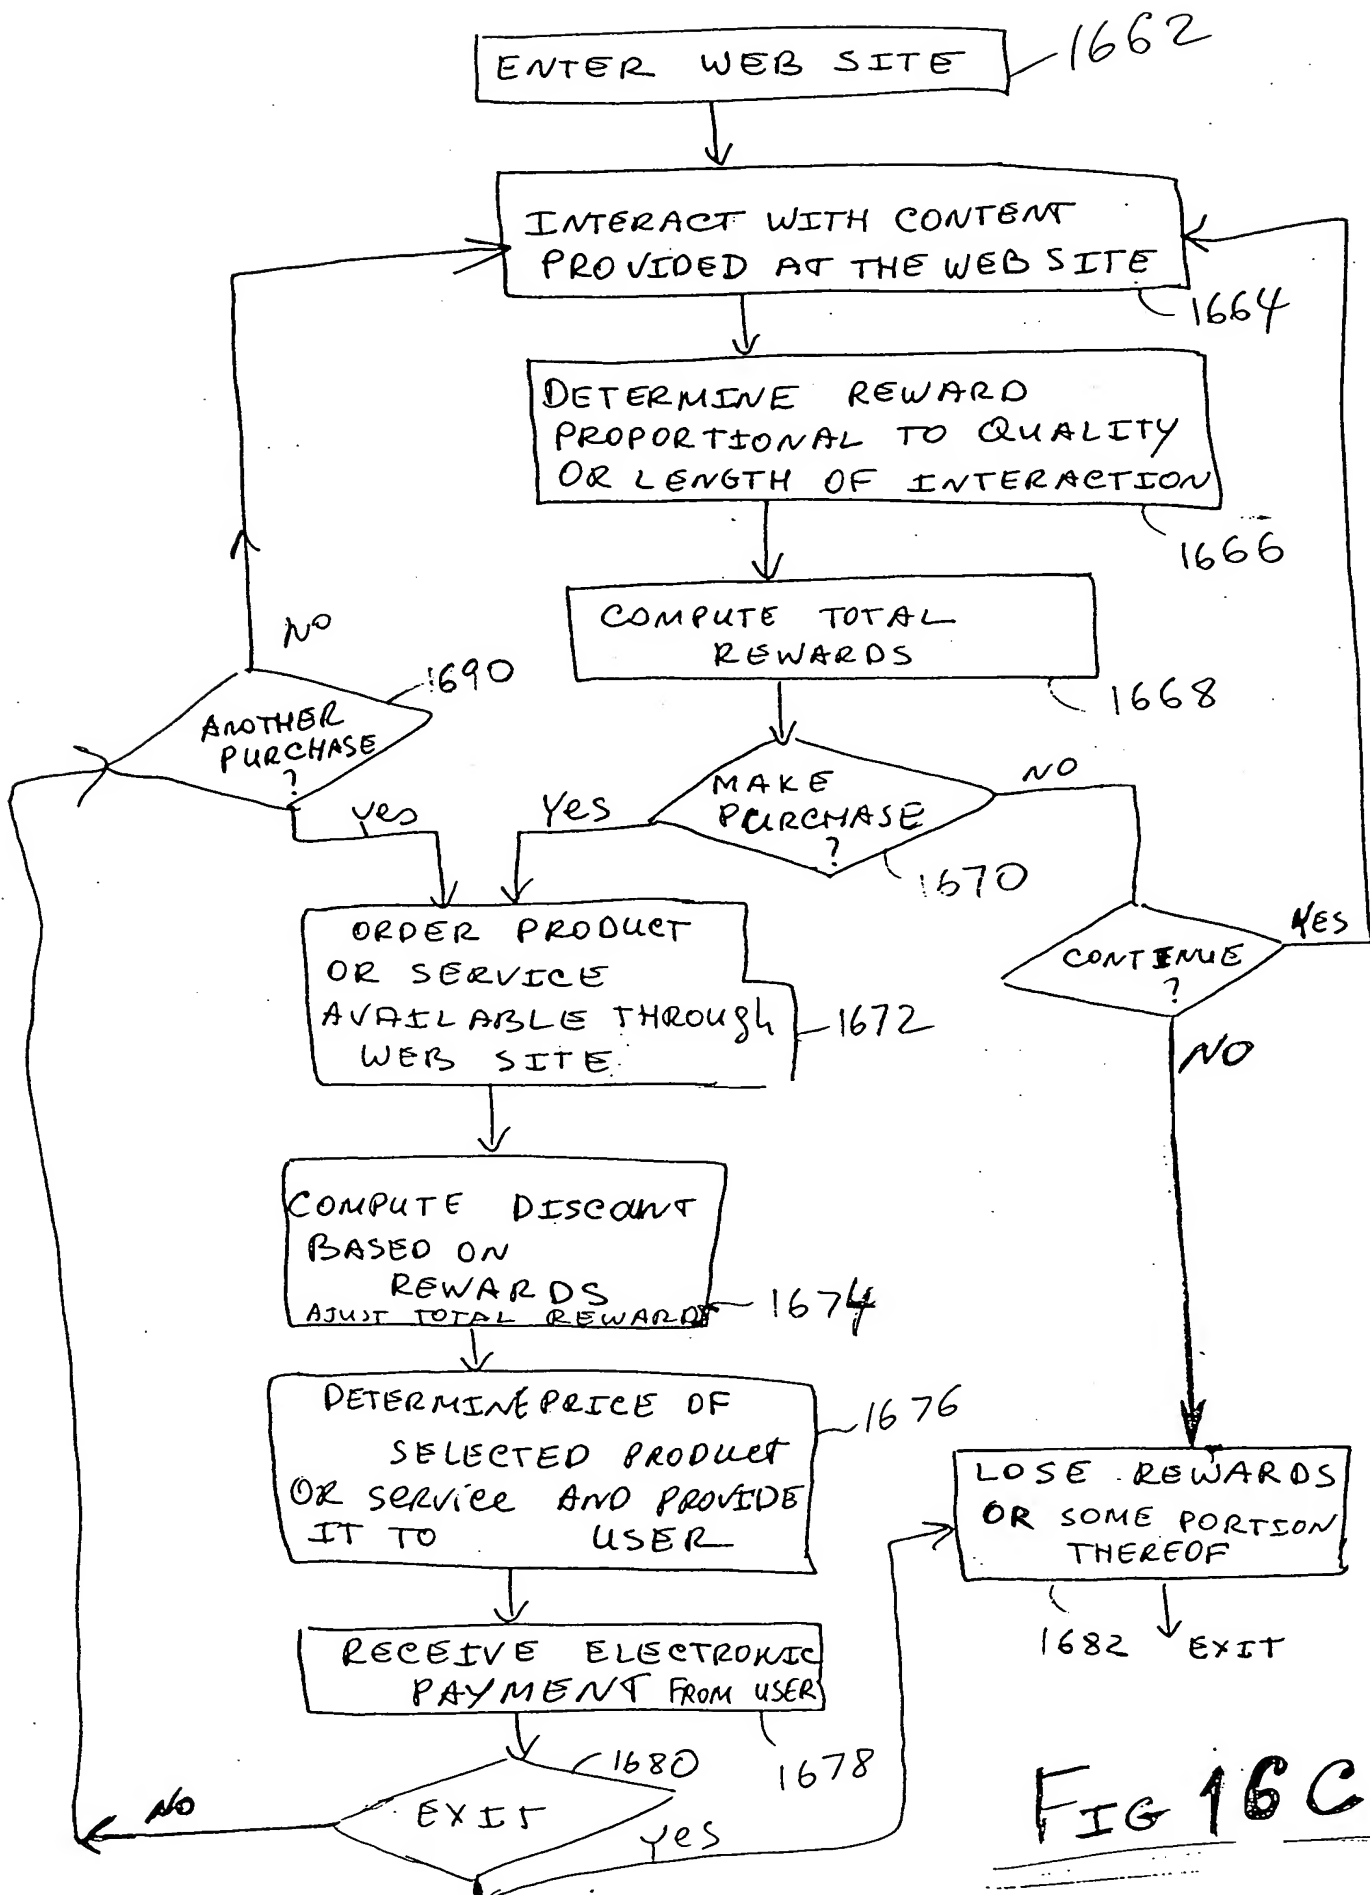 ENTER WEB SITE
1662
INTERACT WITH CONTENT
PROVIDED AT THE WEB SITE
1664
DETERMINE REWARD
PROPORTIONAL TO QUALITY
OR LENGTH OF INTERACTION
1666
COMPUTE TOTAL
REWARDS
1668
NO
1690
ANOTHER
PURCHASE
?
yes
MAKE
PURCHASE
?
NO
Yes
1670
ORDER PRODUCT
OR SERVICE
AVAILABLE THROUGh
WEB SITE
1672
CONTINUE
?
YES
NO
COMPUTE DISCOUNT
BASED ON
REWARDS
AJUST TOTAL REWARDS
1674
DETERMINE PRICE OF
SELECTED PRODUCT
OR SERVICE AND PROVIDE
IT TO USER
1676
LOSE REWARDS
OR SOME PORTION
THEREOF
1682
EXIT
RECEIVE ELECTRONIC
PAYMENT FROM USER
1678
1680
EXIT
NO
yes
FIG 16C